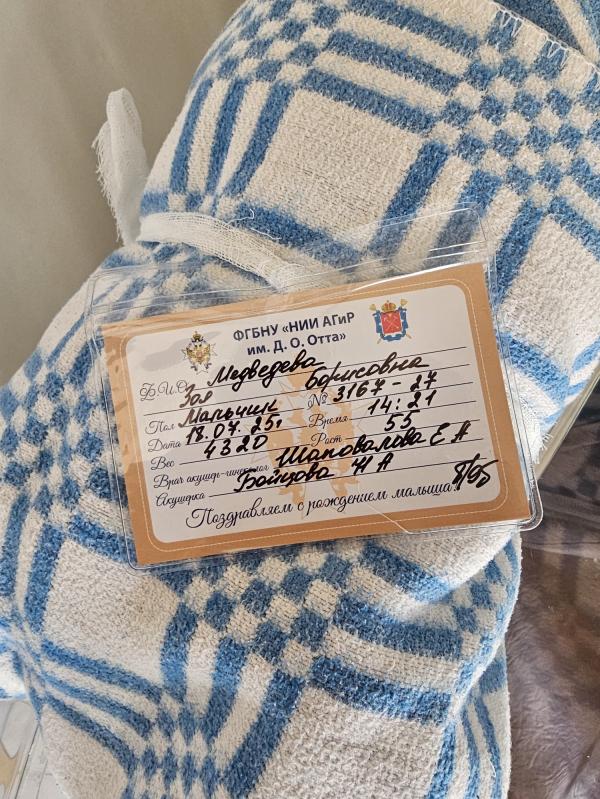 ФГБНУ «НИИ АГиР
им. Д. О. Отта»
Ф.И.О. Медведева
Зоя Борисовна
Пол Мальчик № 3167-27
Дата 18.07.25г Время 14:21
Вес 4320 Рост 55
Врач акушер-гинеколог Шаповалова Е А
Акушерка Бойцова Н А
Поздравляем с рождением малыша!